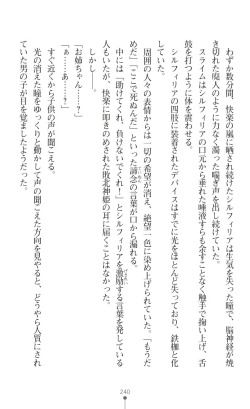 わずか数分間、快楽の嵐に晒され続けたシルフィリアは生気を失った瞳で、脳神経が焼
き切れた廃人のように力なく濁った喘ぎ声を出し続けていた。
スライムはシルフィリアの口元から垂れた唾液すらも余すことなく触手で掬い上げ、舌
鼓を打つように体を震わせる。
シルフィリアの四肢に装着されたデバイスはすでに光をほとんど失っており、鉄枷と化
していた。
周囲の人々の表情からは一切の希望が消え、絶望一色に染め上げられていた。「もうだ
めだ」「ここで死ぬんだ」といった諦念の言葉が口から漏れる。
ていねん
中には「助けてくれ、負けないでくれ!」とシルフィリアを激励する言葉を発している
げきれい
人もいたが、快楽に囚われた敗北神姫の耳に届くことはなかった。
しかし――。
「お姉ちゃん……?」
「ぁ……あ……?」
すぐ近くから子供の声が聞こえる。
光の消えた瞳をゆっくりと動かして声の聞こえた方向を見やると、どうやら人質にされ
ていた男の子が目を覚ましたようだった。
240